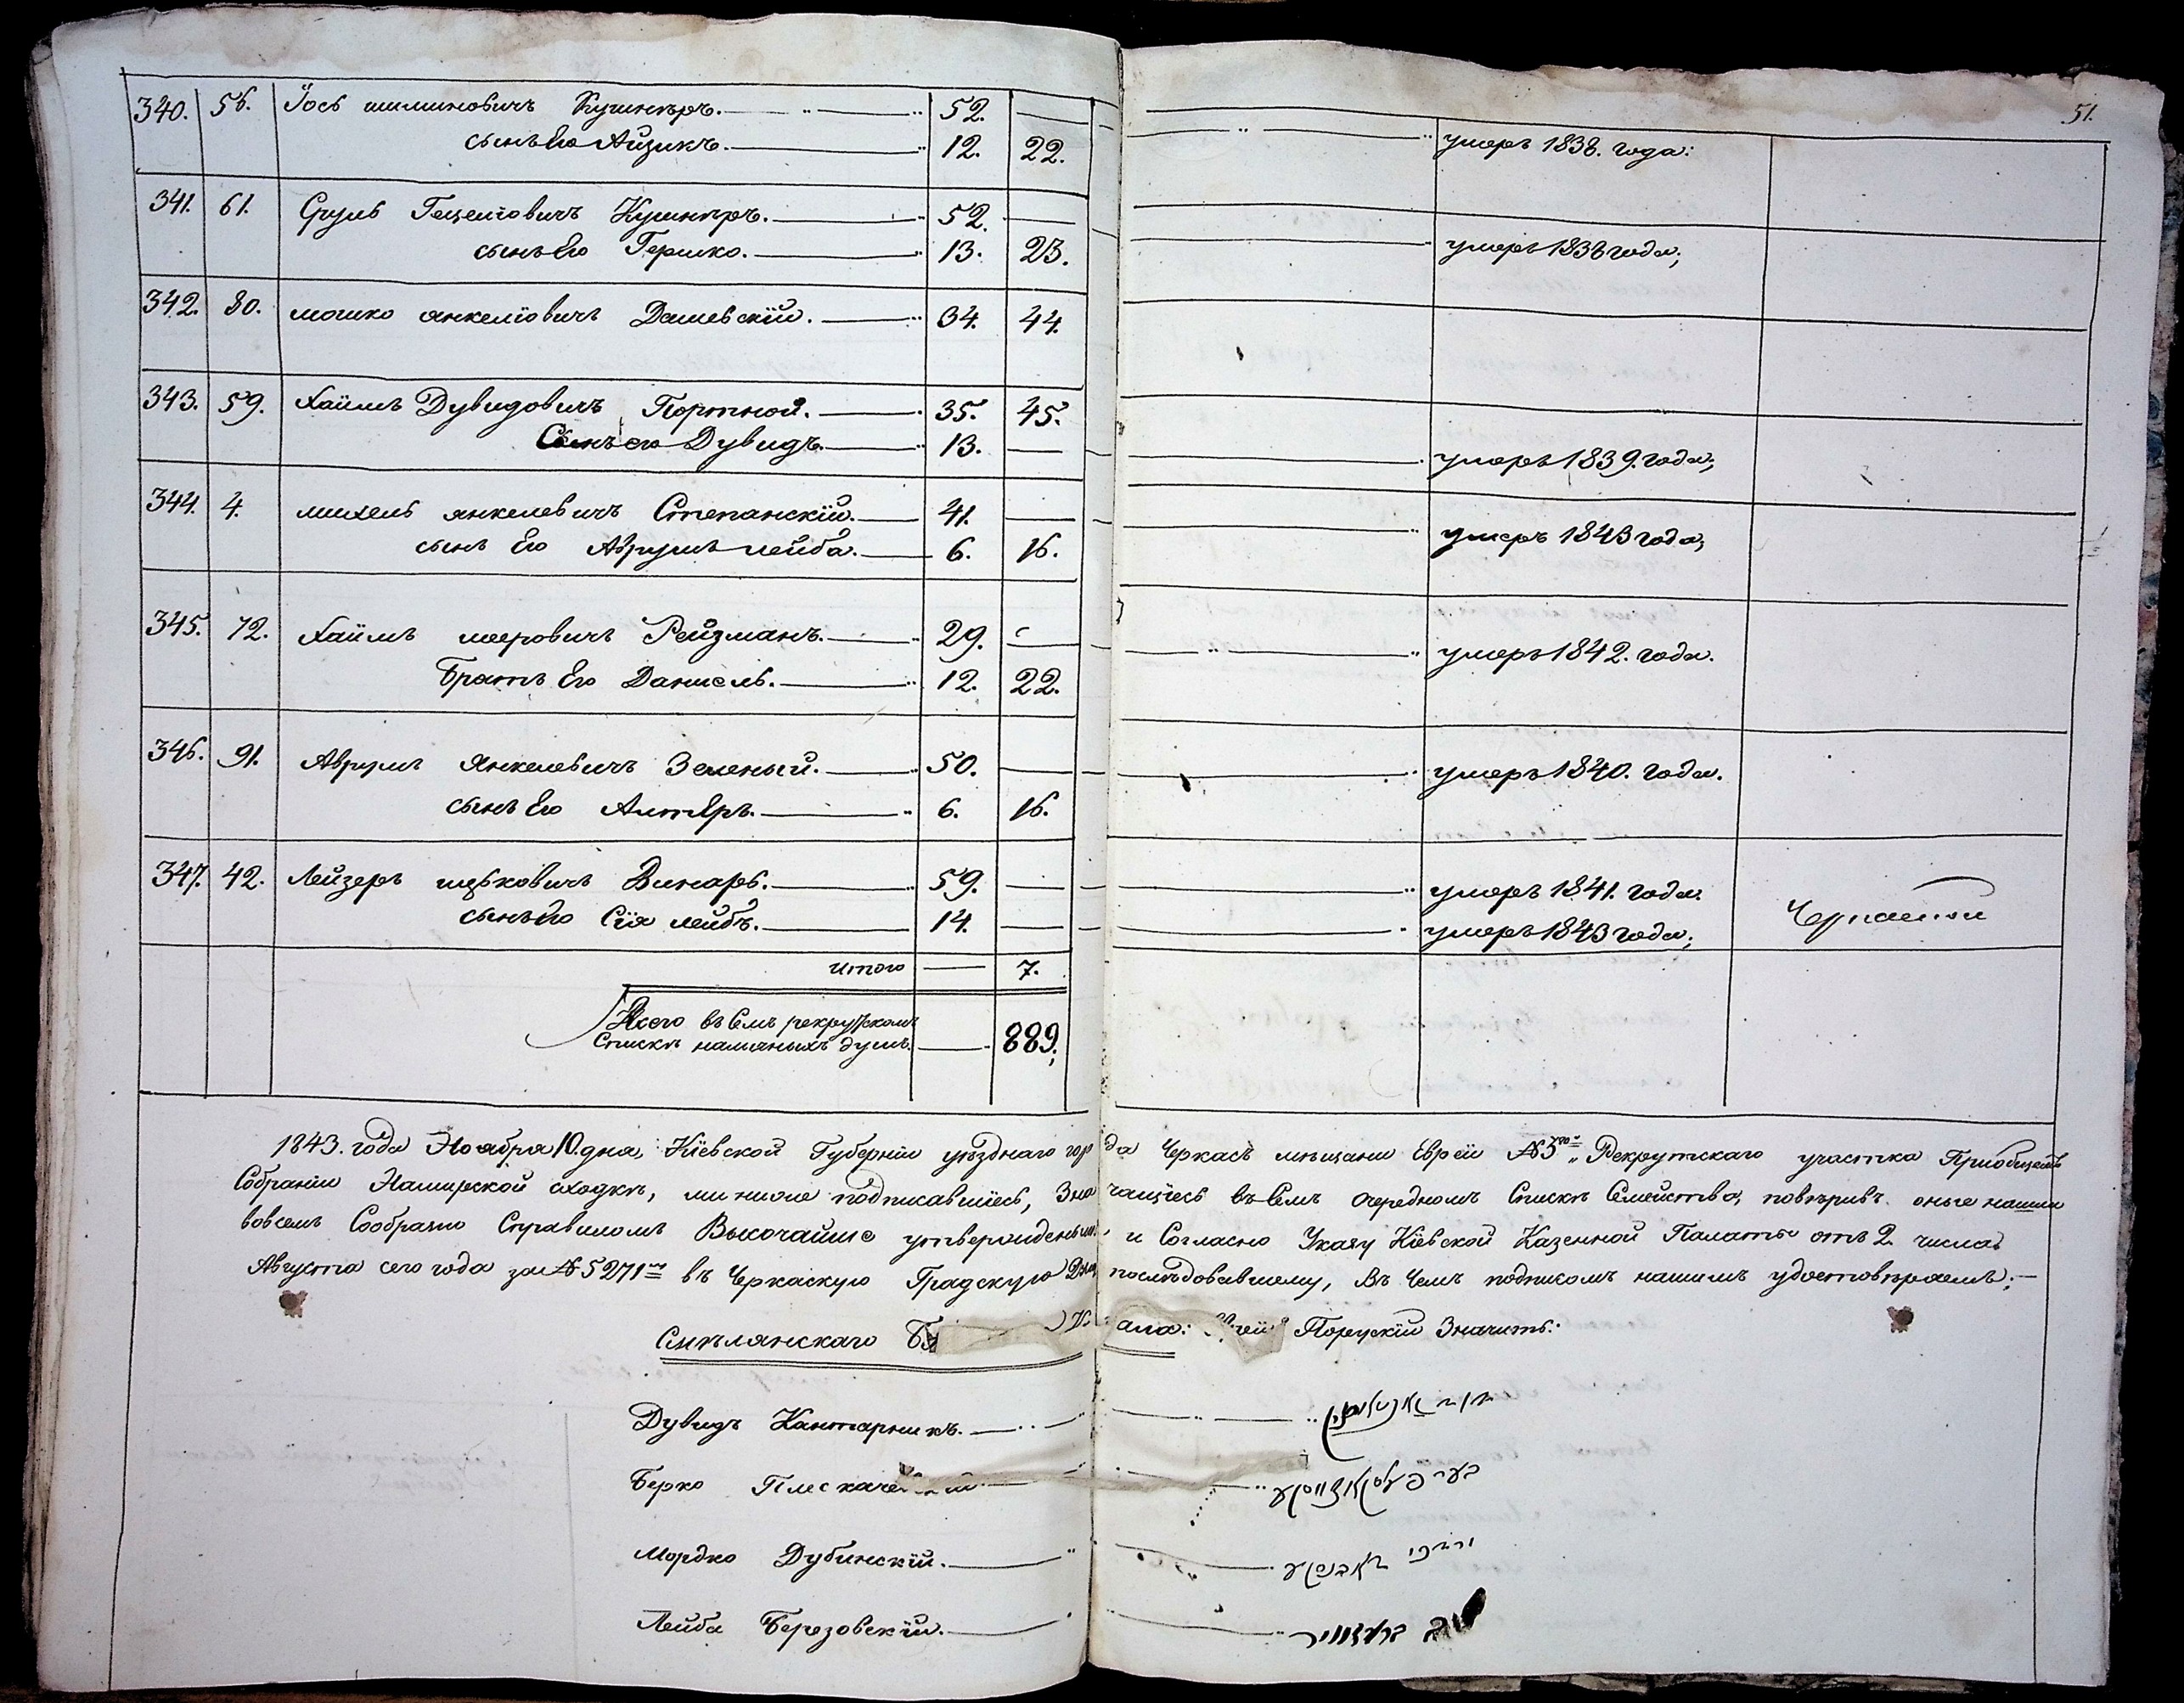 51.
340. 56. Іось шиминовичъ Кушниръ. 52. — умеръ 1838. года:
сынъ Его Айзикъ. 12. 22.
341. 61. Сруль Гецелiовичъ Кушниръ. 52. —
сынъ Его Гершко. 13. 23. умеръ 1838 года;
342. 80. мошко янкелiовичъ Дашевскiй. 34. 44.
343. 59. Хаймъ Дувидовичъ Портной. 35. 45.
Сынъ его Дувидъ. 13. — умеръ 1839. года;
344. 4. михель янкелевичъ Степанскiй. 41. — умеръ 1843 года;
сынъ Его Аврумъ лейба. 6. 16.
345. 72. Хаймъ меровичъ Рейзманъ. 29. — умеръ 1842. года.
Братъ Его Даниель. 12. 22.
346. 91. Аврумъ Янкелевичъ Зеленый. 50. — умеръ 1840. года.
сынъ Его Алтеръ. 6. 16.
347. 42. Лейзеръ ицьковичъ Винаръ. 59. — умеръ 1841. года.
сынъ Его Сiя лейбъ. 14. — умеръ 1843 года;
итого — 7.
Всего въ Семъ рекрутскомъ
Спискѣ наличныхъ душъ. — 889;
1843. года Ноабра 10. дна, Кiевской Губернiи уѣзднаго города Черкасъ мѣщане Евреи №3го Рекрутскаго участка
Собранiи Намирской сходкѣ, ми ниже подписавшiесь, Значащiесь въ Семъ очередномъ Спискѣ Семейства, повѣривъ оные нашли
вовсемъ Сообразно Справиломъ Высочайше утвержденымъ и Согласно Указу Кiевской Казенной Палаты отъ 2 числа
Августа сего года за №5271мъ въ Черкаскую Градскую Думу послѣдовавшему, Въ Чемъ подписомъ нашимъ удостовѣраемъ;—
Смѣлянскаго Значитъ:
Дувидъ Кантарникъ.
Берко
Мордко Дубинскiй.
Лейба Березовскiй.